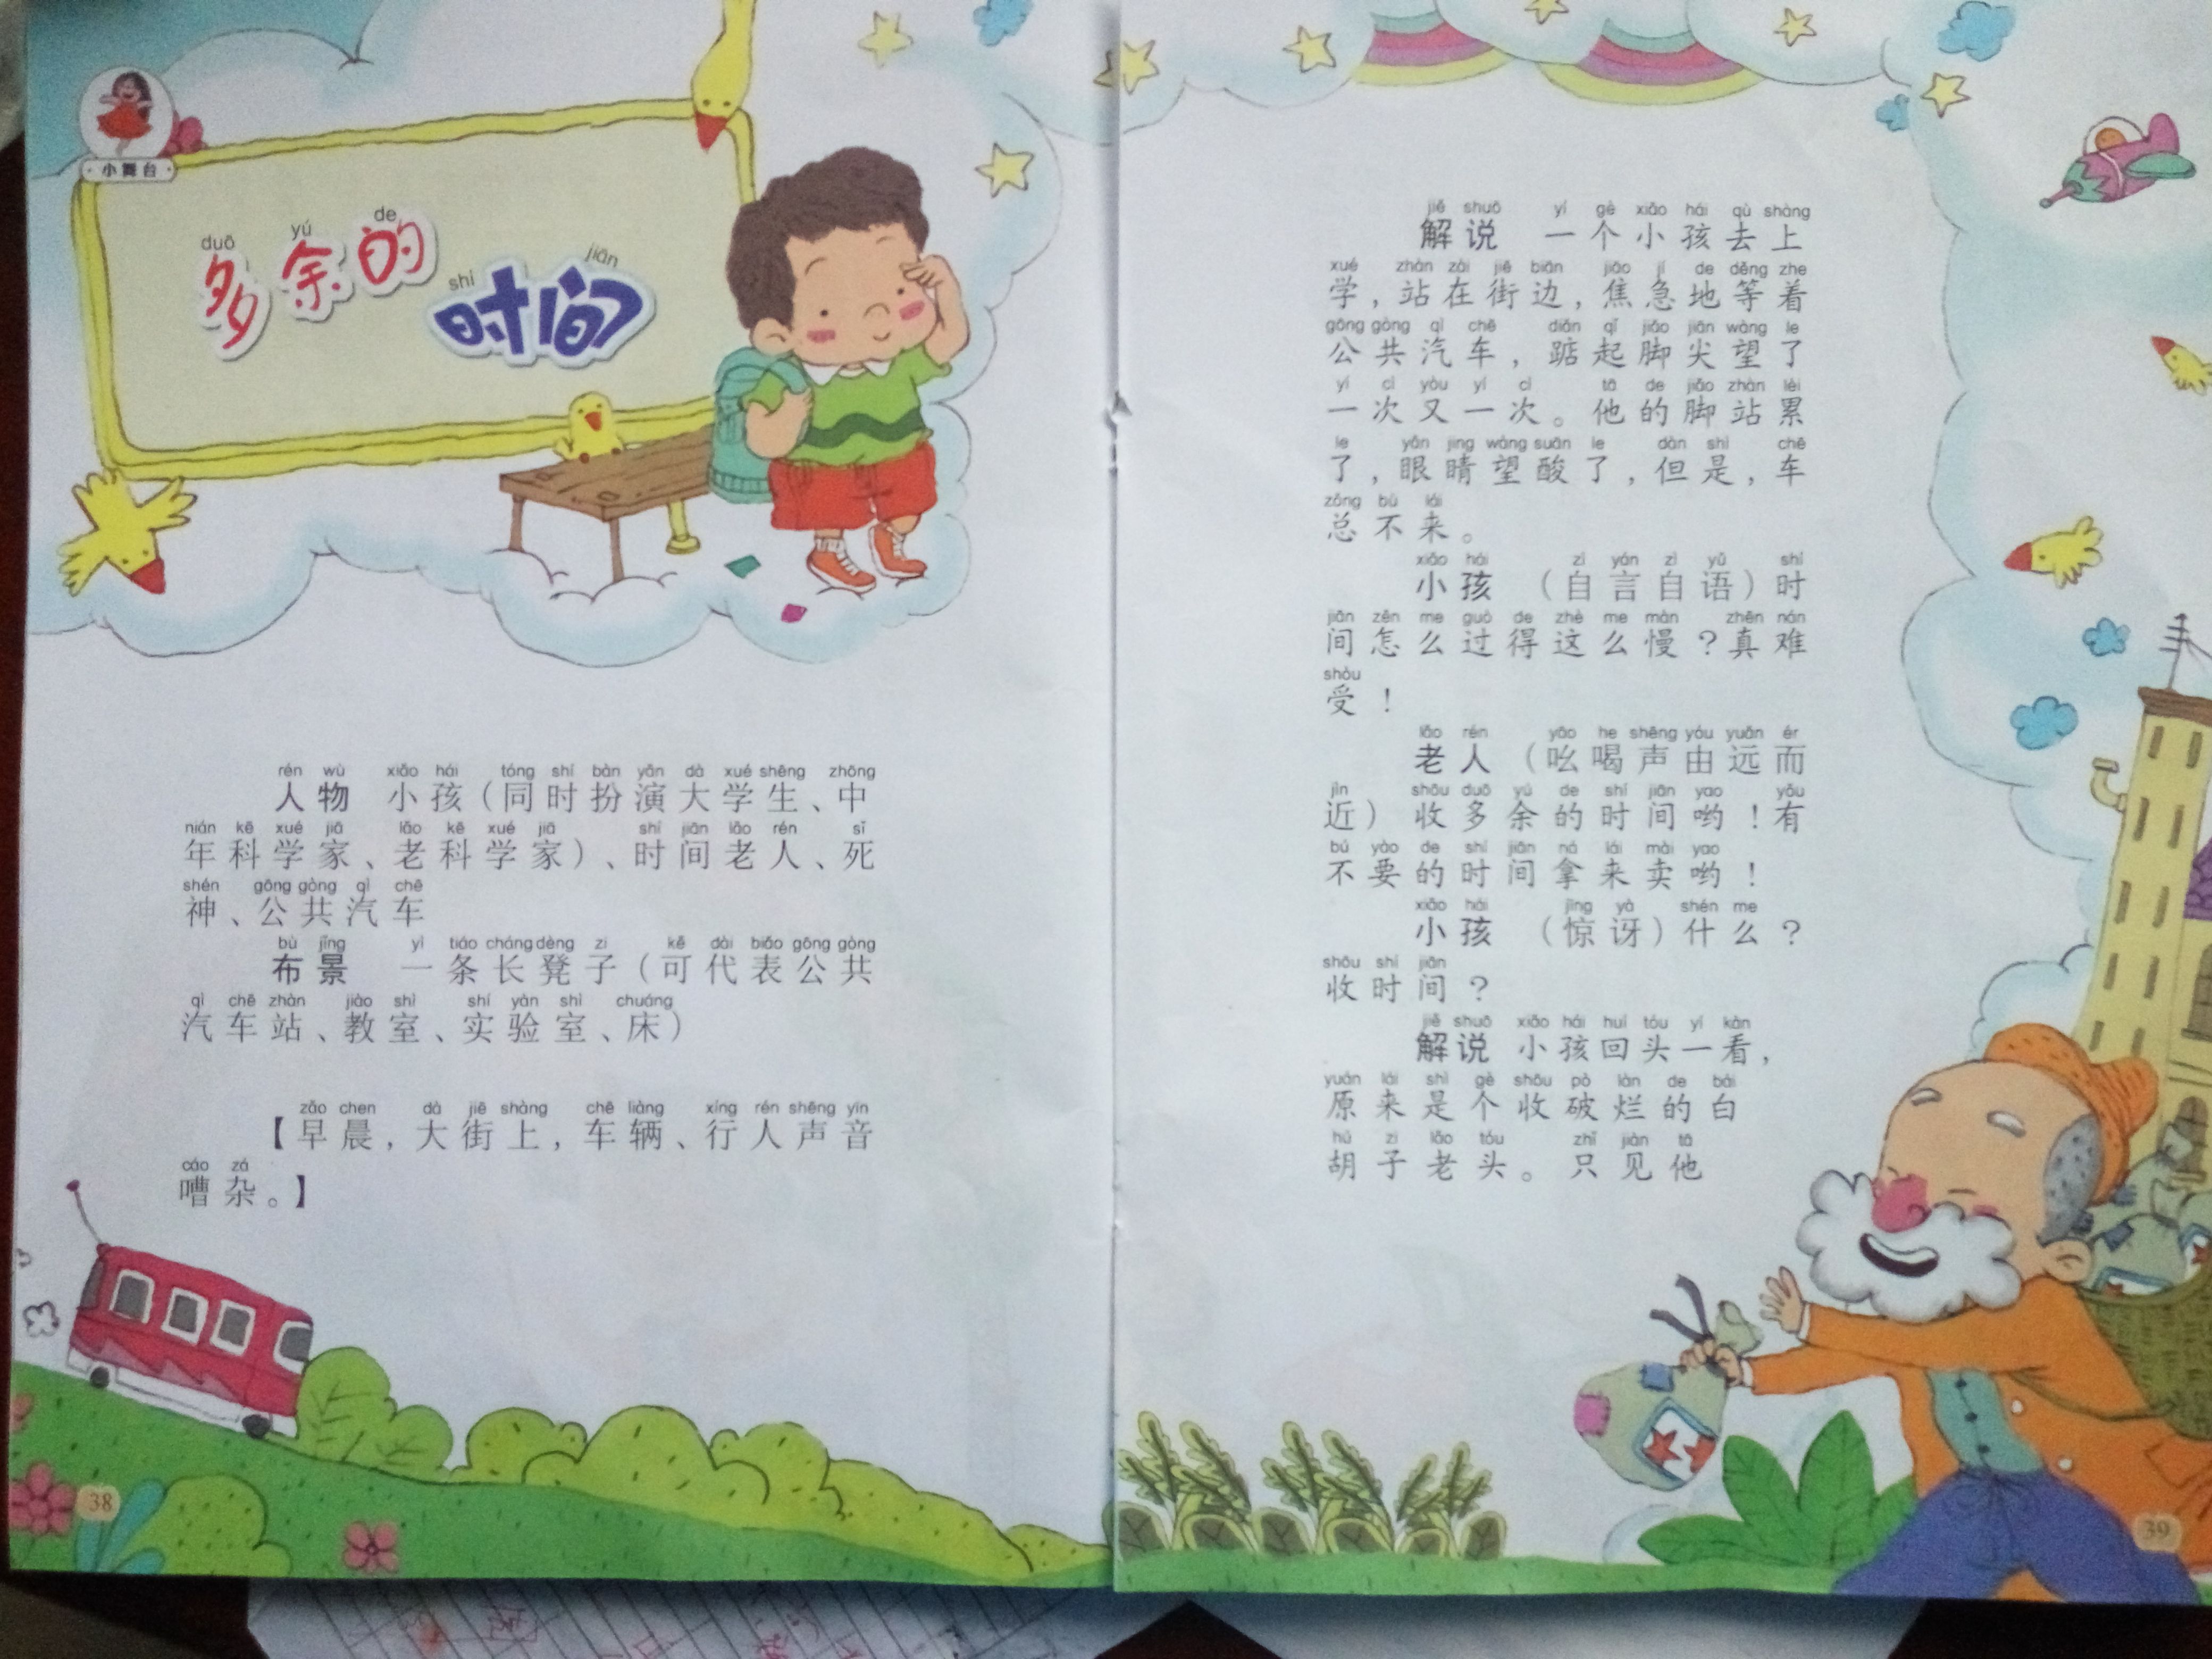 小舞台
duō yú de
多余的
shí jiān
时间
rén wù xiǎo hái tóng shí bàn yǎn dà xué shēng zhōng
人物 小孩（同时扮演大学生、中
nián kē xué jiā lǎo kē xué jiā shí jiān lǎo rén sǐ
年科学家、老科学家）、时间老人、死
shén gōng gòng qì chē
神、公共汽车
bù jǐng yì tiáo cháng dèng zi kě dài biǎo gōng gòng
布景 一条长凳子（可代表公共
qì chē zhàn jiào shì shí yàn shì chuáng
汽车站、教室、实验室、床）
zǎo chen dà jiē shàng chē liàng xíng rén shēng yīn
【早晨，大街上，车辆、行人声音
cáo zá
嘈杂。】
38
jiě shuō yí gè xiǎo hái qù shàng
解说 一个小孩去上
xué zhàn zài jiē biān jiāo jí de děng zhe
学，站在街边，焦急地等着
gōng gòng qì chē diǎn qǐ jiǎo jiān wàng le
公共汽车，踮起脚尖望了
yí cì yòu yí cì tā de jiǎo zhàn lèi
一次又一次。他的脚站累
le yǎn jing wàng suān le dàn shì chē
了，眼睛望酸了，但是，车
zǒng bù lái
总不来。
xiǎo hái zì yán zì yǔ shí
小孩 （自言自语）时
jiān zěn me guò de zhè me màn zhēn nán
间怎么过得这么慢？真难
shòu
受！
lǎo rén yāo he shēng yóu yuǎn ér
老人 （吆喝声由远而
jìn shōu duō yú de shí jiān yao yǒu
近） 收多余的时间哟！有
bú yào de shí jiān ná lái mài yao
不要的时间拿来卖哟！
xiǎo hái jīng yà shén me
小孩 （惊讶）什么？
shōu shí jiān
收时间？
jiě shuō xiǎo hái huí tóu yí kàn
解说 小孩回头一看，
yuán lái shì gè shōu pò làn de bái
原来是个收破烂的白
hú zi lǎo tóu zhǐ jiàn tā
胡子老头。只见他
39